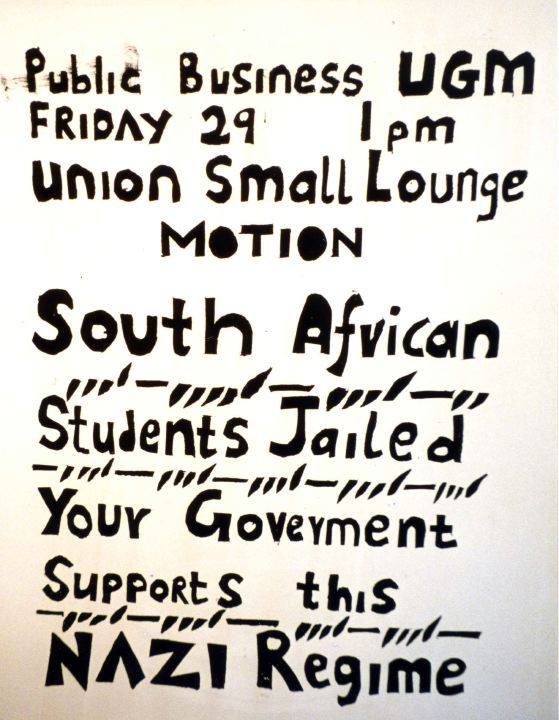 Public Business UGM
FRIDAY 29 1pm
Union Small Lounge
MOTION
South African
Students Jailed
Your Goverment
Supports this
NAZI Regime